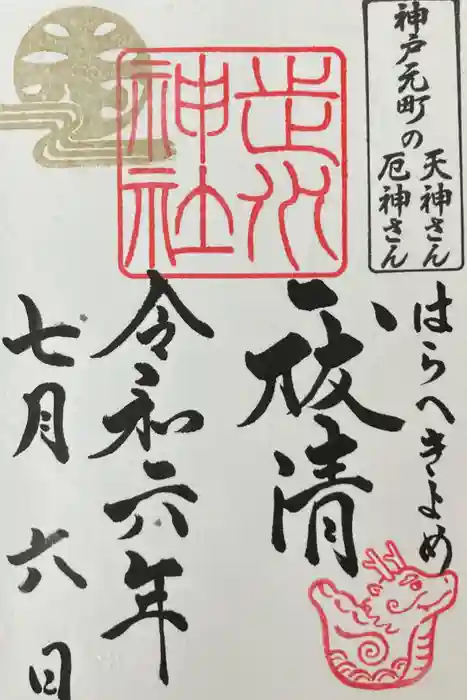 神戸元町の
天神さん
厄神さん
はらへきよめ
走水
神社
祓清
令和六年
七月六日